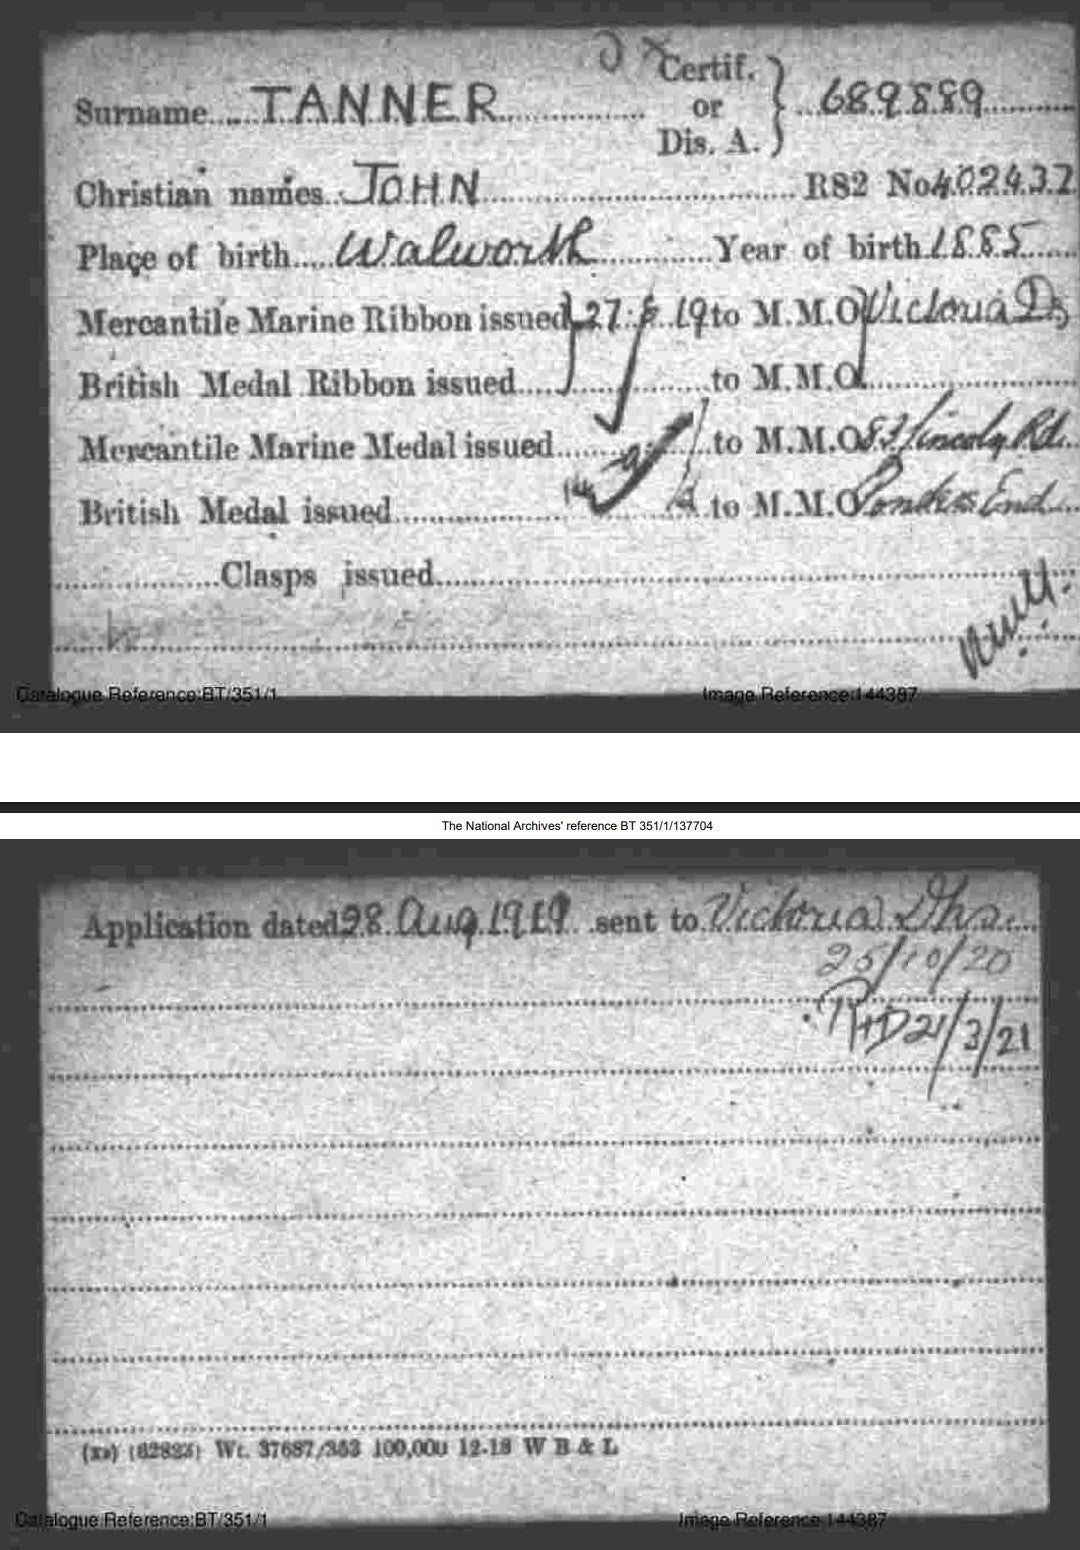 Certif.
Surname TANNER or 689889
Dis. A.
Christian names JOHN R82 No 402432
Place of birth Walworth Year of birth 1885
Mercantile Marine Ribbon issued 27.8.19 to M.M.O Victoria Ds
British Medal Ribbon issued to M.M.O
Mercantile Marine Medal issued to M.M.O 82 Lincoln Rd.
British Medal issued to M.M.O Ponders End
Clasps issued
Catalogue Reference:BT/351/1 Image Reference:144387
The National Archives' reference BT 351/1/137704
Application dated 28 Aug 1919 sent to Victoria Dks.
25/10/20
21/3/21
Wt. 37687/353 100,000 12-18 W B & L
Catalogue Reference:BT/351/1 Image Reference:144387